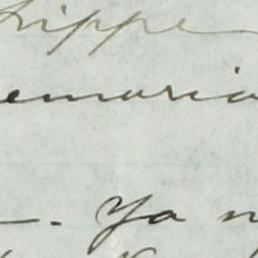 hippe
emoria
-. Ya n